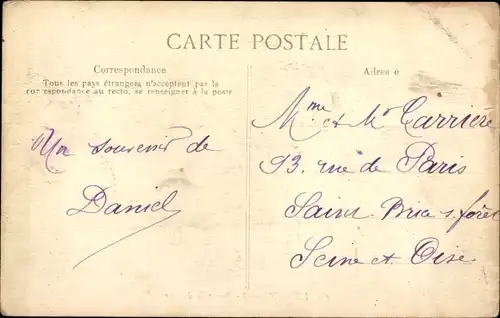 CARTE POSTALE
Correspondance
Tous les pays étrangers n'acceptent pas la
correspondance au recto, se renseigner à la poste
Adresse
Un souvenir de
Daniel
Mme et Mr Carrière
93. rue de Paris
Saint Brice s. forêt
Seine et Oise